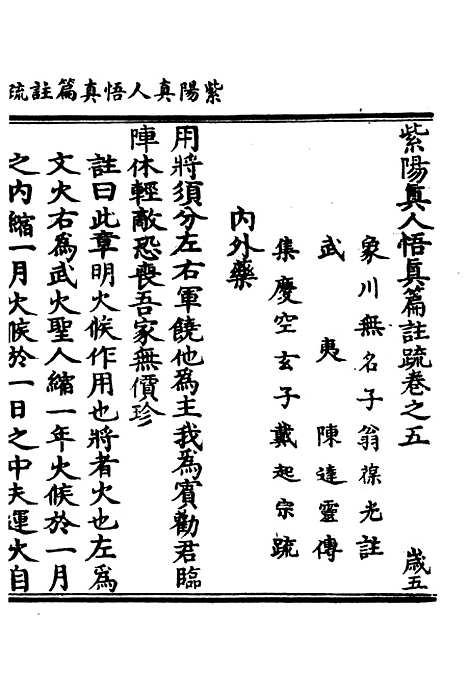 紫陽真人悟真篇註疏
紫陽眞人悟眞篇註疏卷之五　歲五
象川無名子翁葆光註
武夷陳達靈傳
集慶空玄子戴起宗疏
內外藥
用將須分左右軍饒他為主我為賓勸君臨
陣休輕敵恐喪吾家無價珍
註曰此章明火候作用也將者火也左為
文火右為武火聖人縮一年火候於一月
之內縮一月火候於一日之中夫運火自